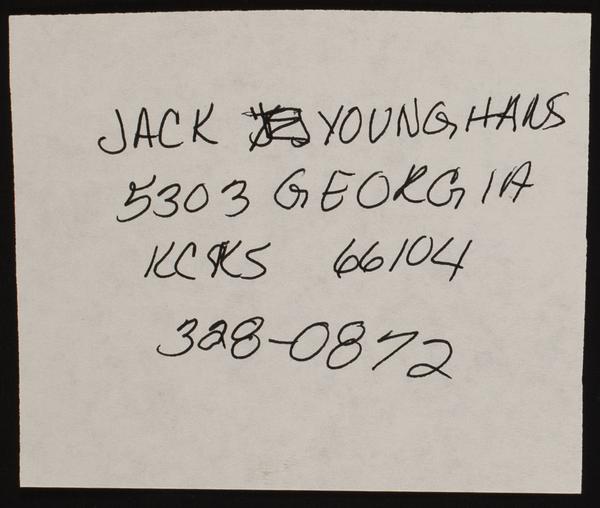 JACK YOUNGHANS
5303 GEORGIA
KCKS 66104
328-0872